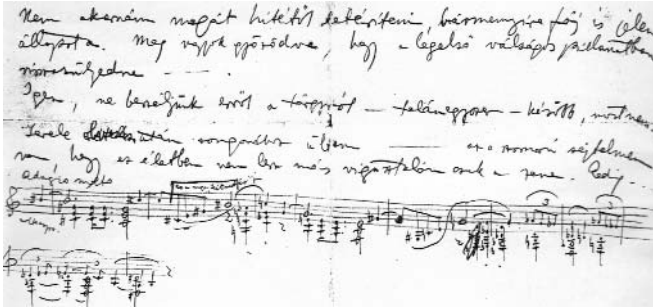 Nem akarnám magát hitétől eltéríteni, bármennyire fáj is jelen
állapota. Meg vagyok győződve, hogy a legelső válságos pillanatban
visszazülledne
Igen, ne beszéljünk erről a tárgyról — talán egyszer — később, most nem.
levele után zongorához ültem — az a szomorú sejtelmem
van, hogy ez életben nem lesz más vigasztalóm csak a zene. Pedig
adagio molto